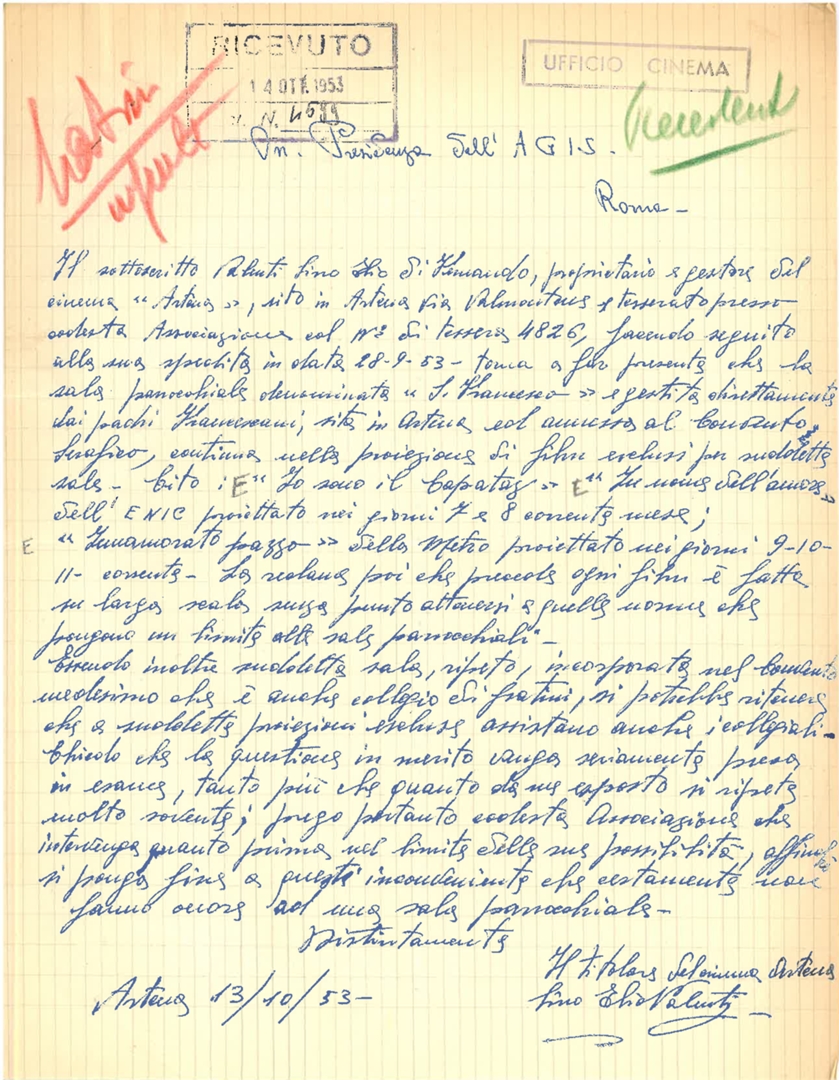 RICEVUTO
14 OTT. 1953
N. 4599
UFFICIO CINEMA
On. Presidenza dell' A G I S.
Roma -
Il sottoscritto Valenti Lino Elio di Fernando, proprietario e gestore del
cinema " Artena ", sito in Artena Via Valmontone e tesserato presso
codesta Associazione col No di tessera 4826, facendo seguito
alla sua spedita in data 28-9-53 - torna a far presente che la
sala parrocchiale denominata " S. Francesco " e gestita direttamente
dai padri Francescani, sita in Artena ed annessa al Convento
Serafico, continua nella proiezione di films esclusi per suddette
sale - Cito : E " Io sono il Capataz " E " In nome dell'amore "
dell' ENIC proiettato nei giorni 7 e 8 corrente mese ;
E " Innamorato pazzo " della Metro proiettato nei giorni 9-10-
11- corrente - La reclame poi che precede ogni film è fatta
su larga scala senza punto attenersi a quelle norme che
pongono un limite alle sale parrocchiali -
Essendo inoltre suddetta sala, ripeto, incorporata nel Convento
medesimo che è anche collegio di fratini, si potrebbe ritenere
che a suddette proiezioni escluse assistano anche i collegiali -
Chiedo che la questione in merito venga seriamente presa
in esame, tanto più che quanto da me esposto si ripete
molto sovente ; prego pertanto codesta Associazione che
intervenga quanto prima nel limite delle sue possibilità, affinché
si ponga fine a questi inconvenienti che certamente non
fanno onore ad una sala parrocchiale -
Distintamente
Il titolare del cinema Artena
Artena 13/10/53 -
Lino Elio Valenti